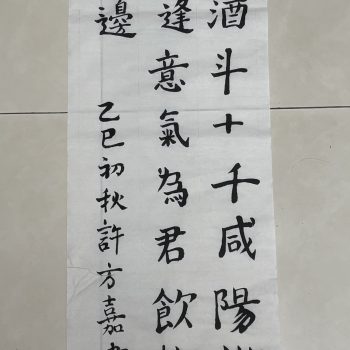 酒斗十千咸陽
逢意氣為君飲
邊
乙巳初秋許方嘉